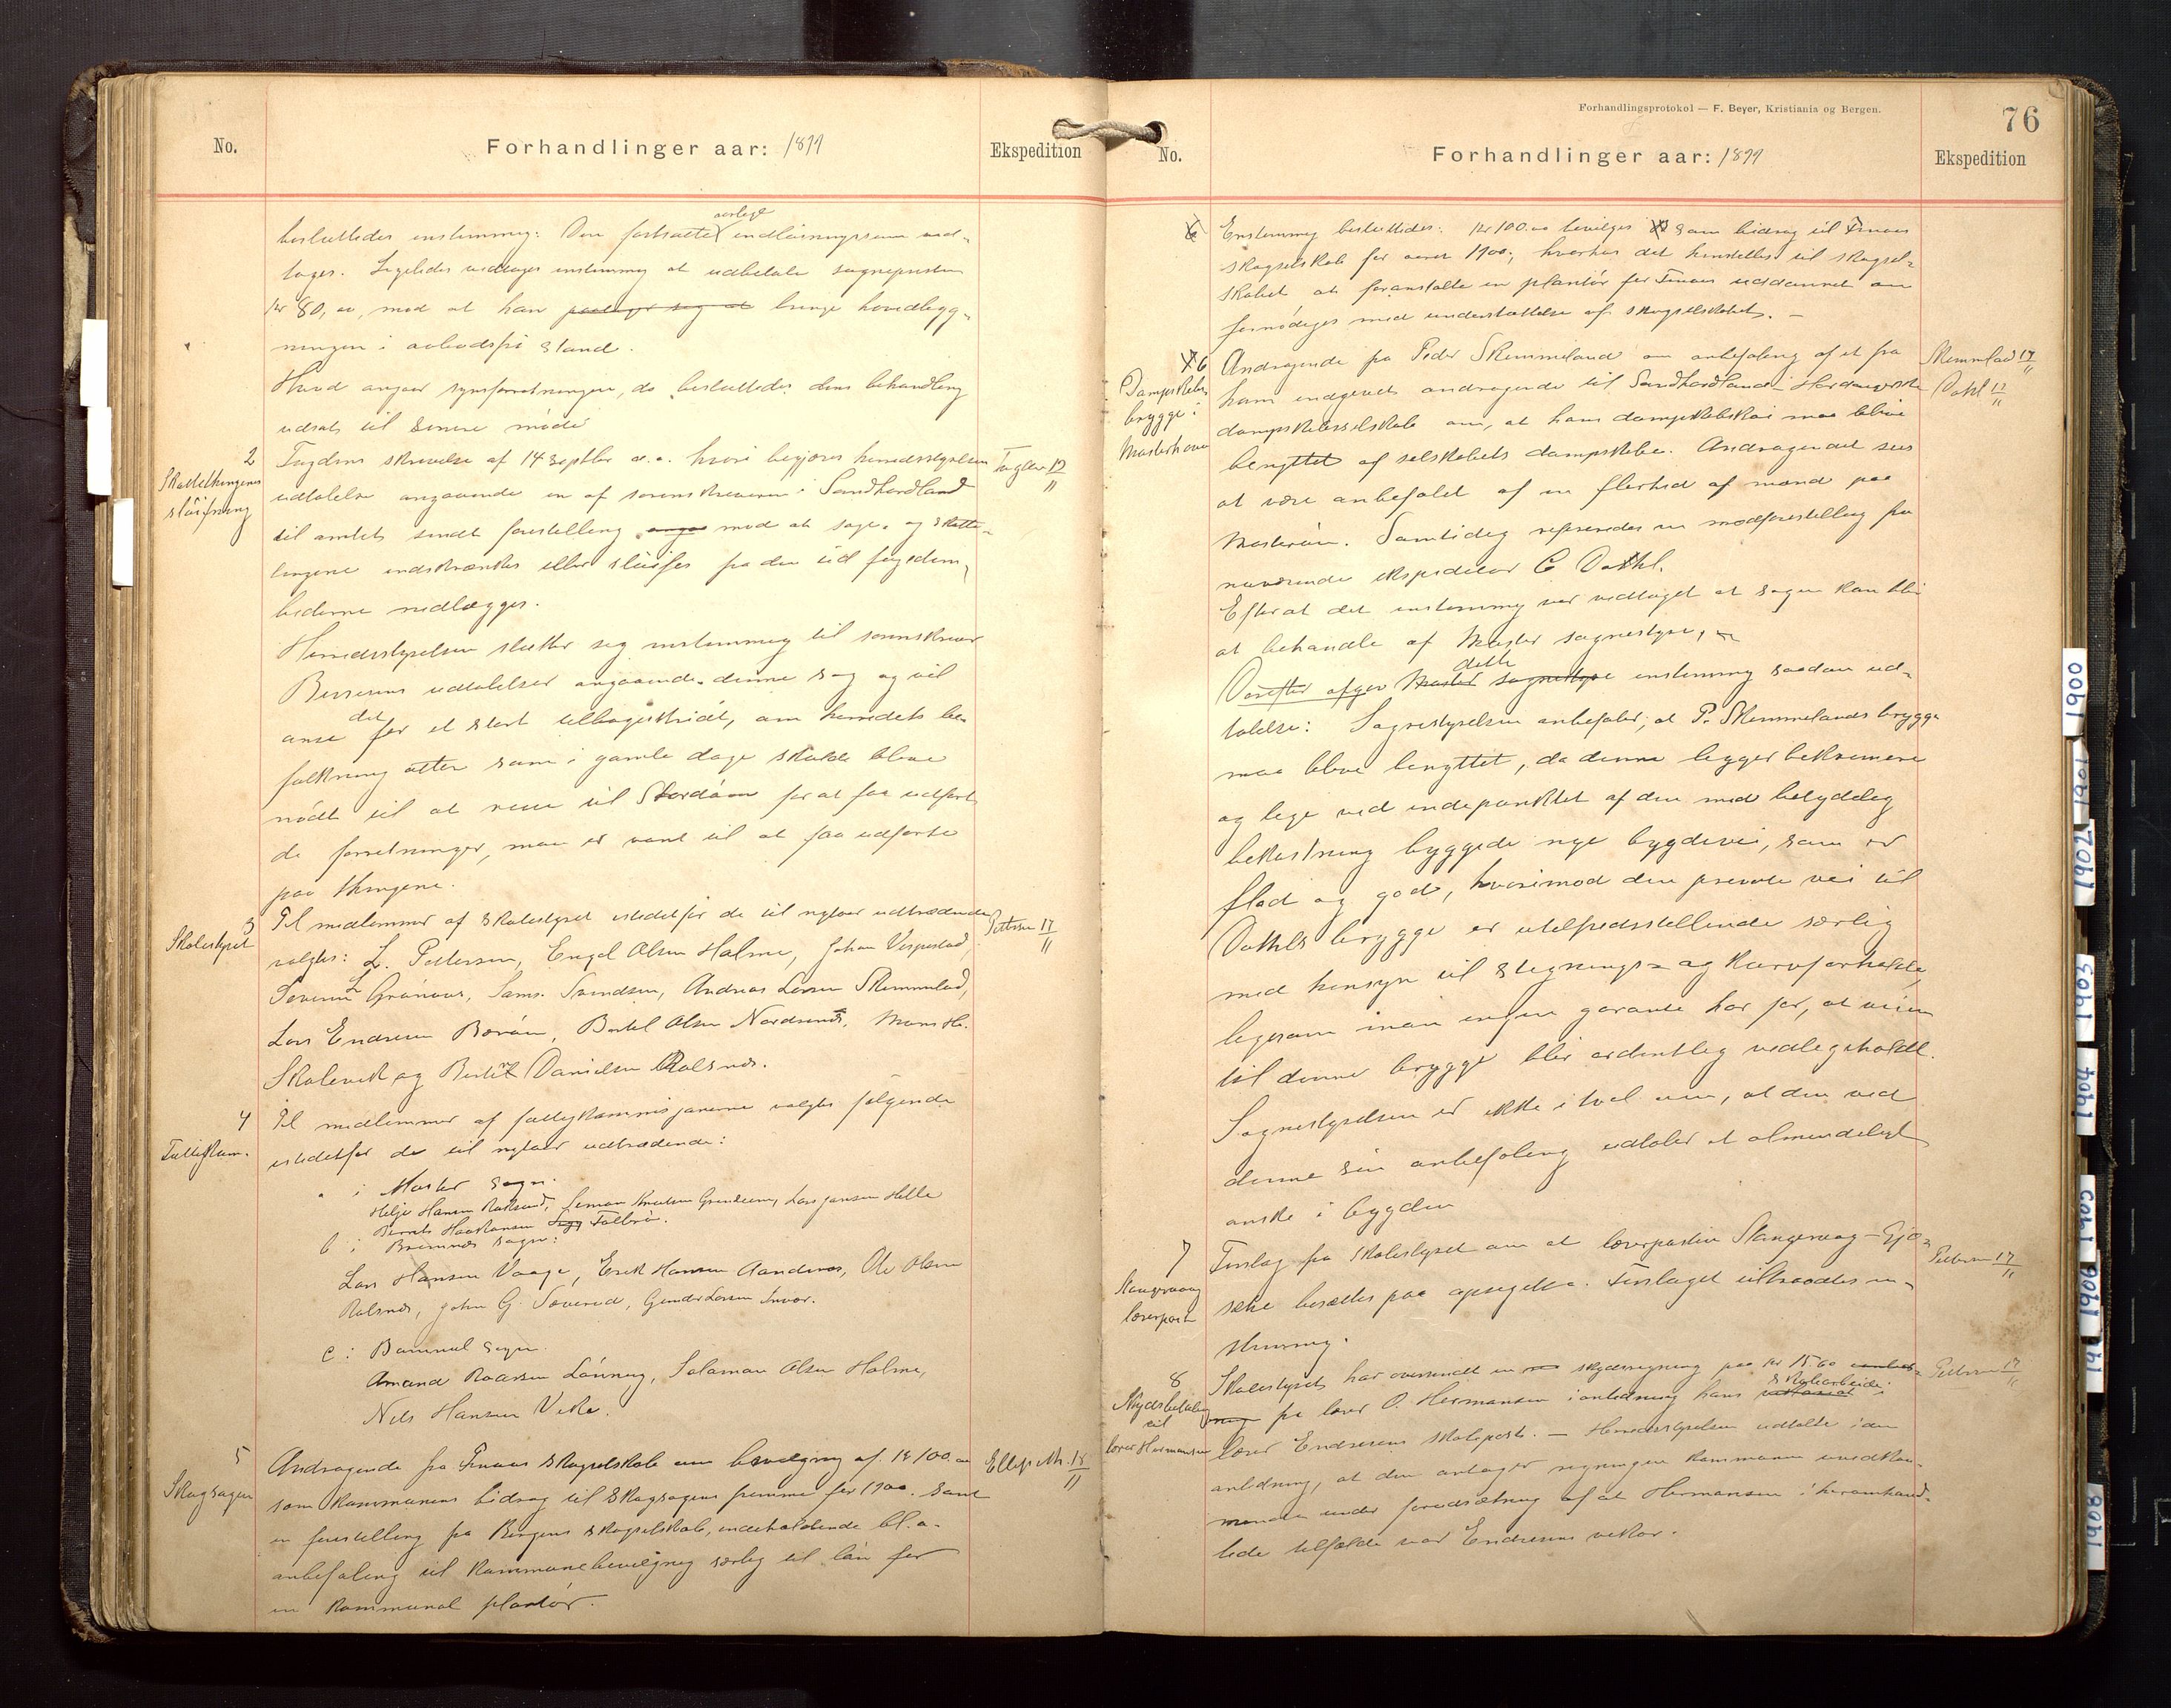 No.
Forhandlinger aar: 1899
Ekspedition
besluttedes enstemmig: Den fortsatte aarlige indløsningssum ved-
tages. Ligeledes vedtages enstemmig at udbetale sognepresten
kr 80,00, mod at han paatager sig at bringe
ningen i stand.
Hvad angaar synsforretningen, da besluttedes dens behandling
udsat til senere møde
2
Skattethingenes
sløifning
Fogdens skrivelse af 14 septbr d.a. hvori begjæres herredsstyrelsens
udtalelse angaaende en af sorenskriveren i Søndhordland
til amtet sendt forestilling mod at sage- og skatte-
tingene indskrænkes eller sløifes fra den tid fogedem-
bederne nedlægges.
Fogden 17/11
Herredsstyrelsen slutter sig enstemmig til sorenskriver
udtalelser angaaende denne sag og vil
anse det for et stort tilbageskridt, om herredets be-
folkning atter som i gamle dage skulde blive
nødt til at reise til Stordøen for at faa udført
de forretninger, man er vant til at faa udførte
paa thingene.
3
Skolestyret
Til medlemmer af skolestyret istedetfor de til nytaar udtrædende
valgtes: L. Pettersen, Engel Olsen Holme, Johan Vespestad,
Severin Grønaas, Sams. Svendsen, Andreas Larsen Skimmeland,
Lars Endresen Børøen, Bertel Olsen Nordsund, Mons H.
Skolevik og Bertel Danielsen Rolsnes.
Pettersen 17/11
4
Fattigkom.
Til medlemmer af fattigkommisjonerne valgtes følgende
istedetfor de til nytaar udtrædende:
a i Moster sogn.
Helje Hansen, Simon Knutsen, Lars Jansen Hille
Bernt Haakonsen
b i Bremnes sogn:
Lars Hansen Vaage, Erik Hansen Aandernes, Ole Olsen
Rolsnes, John G. Sæverud, Larsen
c: Bømmel sogn.
Amand Roaldsen Lønning, Salamon Olsen Holme,
Nils Hansen Vika.
5
Skogsagen
Andragende fra Finaas skogselskab om bevilgning af kr 100.00
som kommunens bidrag til skogsagens fremme for 1900. Samt
en forestilling fra Bergens skogselskab, indeholdende bl.a.
anbefaling til kommunebevilgning særlig til løn for
en kommunal plantør.
Ellefs. M. 18/11
Forhandlingsprotokol — F. Beyer, Kristiania og Bergen.
76
No.
Forhandlinger aar: 1899
Ekspedition
6
Enstemmig besluttedes: kr 100.00 bevilges som bidrag til Finaas
skogselskab for aaret 1900, hvorhos det henstilles til skogsel-
skabet at foranstalte en plantør for Finaas uddannet om
fornødiges med understøttelse af skogselskabet. —
6
Dampskibs
brygge i
Mosterhavn
Andragende fra Peder Skimmeland om anbefaling af et fra
ham indgivet andragende til Søndhordland-Hardangerske
dampskibsselskab om, at hans dampskibskai maa blive
benyttet af selskabets dampskibe. Andragendet sees
at være anbefalet af en flerhed af mænd paa
Mosterøen. Samtidig refereredes en modforestilling fra
nuværende ekspeditør C. Dahl.
Skimmeland 17/11
Dahl 17/11
Efter at det enstemmig var vedtaget at sagen kan bli
at behandle af Moster sognestyre,
Derefter afgav dette Moster sognestyre enstemmig saadan ud-
talelse: Sognestyrelsen anbefaler, at P. Skimmelands brygge
maa blive benyttet, da denne ligger bekvemmere
og lige ved endepunktet af den med betydelig
bekostning byggede nye bygdevei, som er
flad og god, hvorimod den private vei til
Dahls brygge er utilfredsstillende særlig
med hensyn til stignings- og kurveforholde,
ligesom man ingen garanti har for, at veien
til denne brygge blir ordentlig vedligeholdt.
Sognestyrelsen er ikke i tvil om, at den ved
denne sin anbefaling udtaler et almindeligt
ønske i bygden
7
Stangervaag
lærerpost
Forslag fra skolestyret om at lærerposten Stangervaag –
besættes paa opsigelse. Forslaget tiltraadtes en-
stemmig.
Pettersen 17/11
8
Skydsbetaling
til
lærer Hermansen
Skolestyret har oversendt en skydsregning paa kr 15.60
fra lærer O. Hermansen i anledning hans skolearbeide i
lærer Endresens skolepost. — Herredsstyrelsen udtalte i den
anledning, at den antager regningen kommunen uvedkom-
mende under forudsætning af at Hermansen i heromhand-
lede tilfælde var Endresens vikar.
Pettersen 17/11
1900
1901
1902
1903
1904
1905
1906
1908